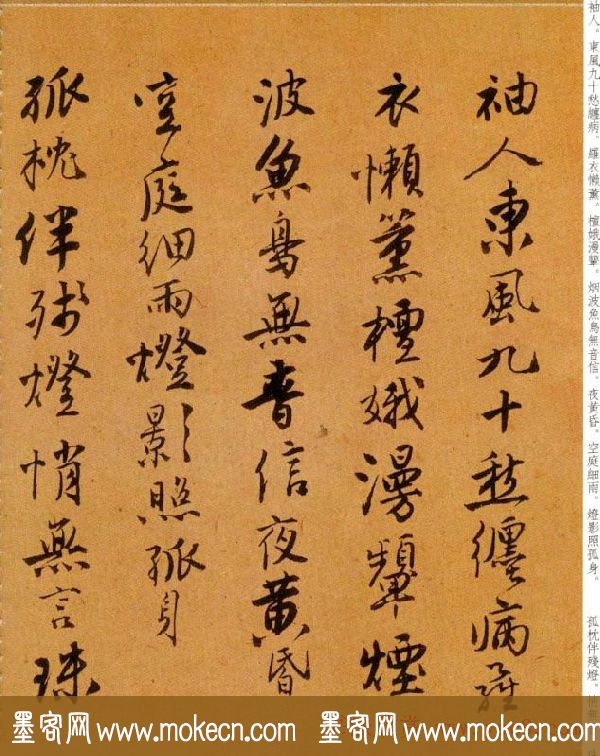 袖人東風九十愁纏病羅
衣懶薰檀娥漫顰煙
波魚鳥無音信夜黄昏
空庭細雨燈影照孤身
孤枕伴殘燈悄無言珠
袖人。東風九十愁纏病。羅衣懶薰。檀娥漫顰。烟波魚鳥無音信。夜黃昏。空庭細雨。燈影照孤身。
孤枕伴殘燈。悄無
墨客网 www.mokecn.com 墨客网 www.mokecn.com